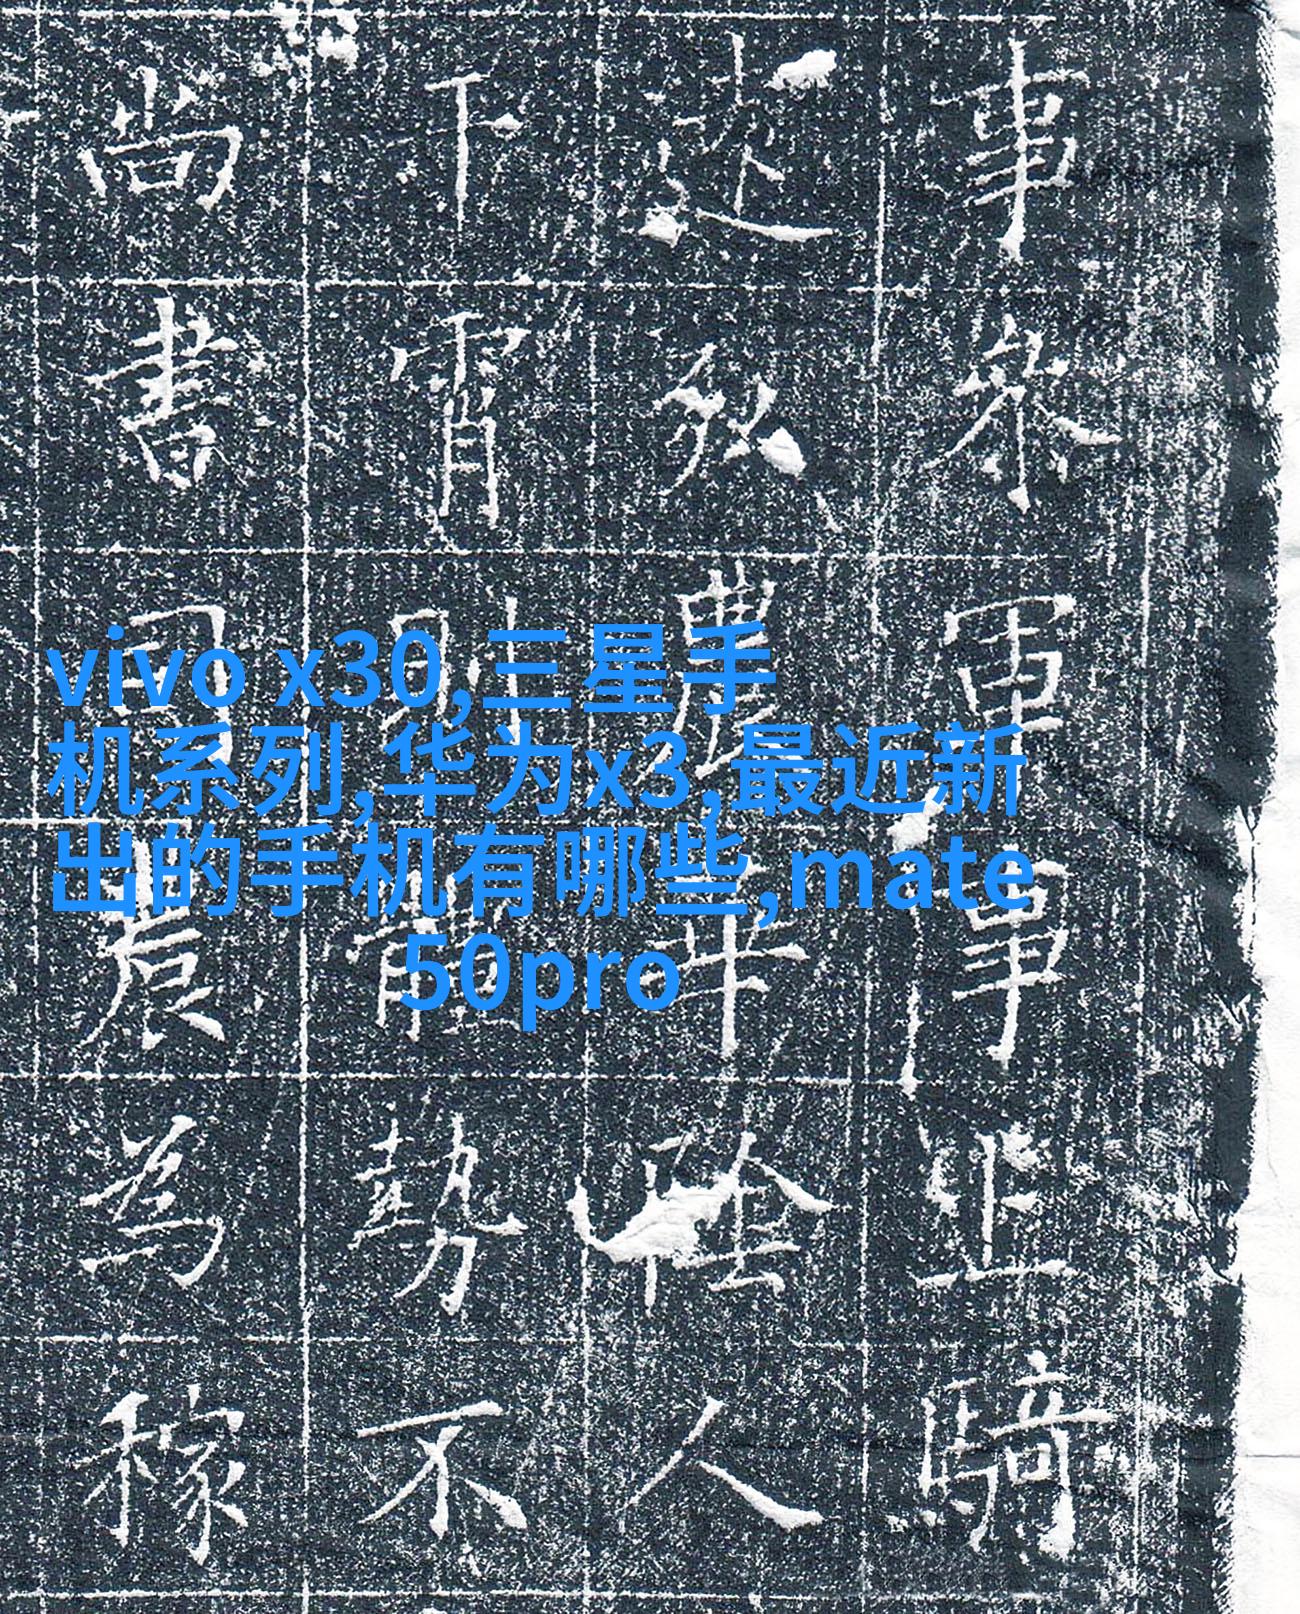 事叅軍事騎
述弘農華陰人
下霄則龍勢不
尚書司為稼
vivo x30,三星手
机系列,华为x3,最近新
出的手机有哪些,mate
50pro